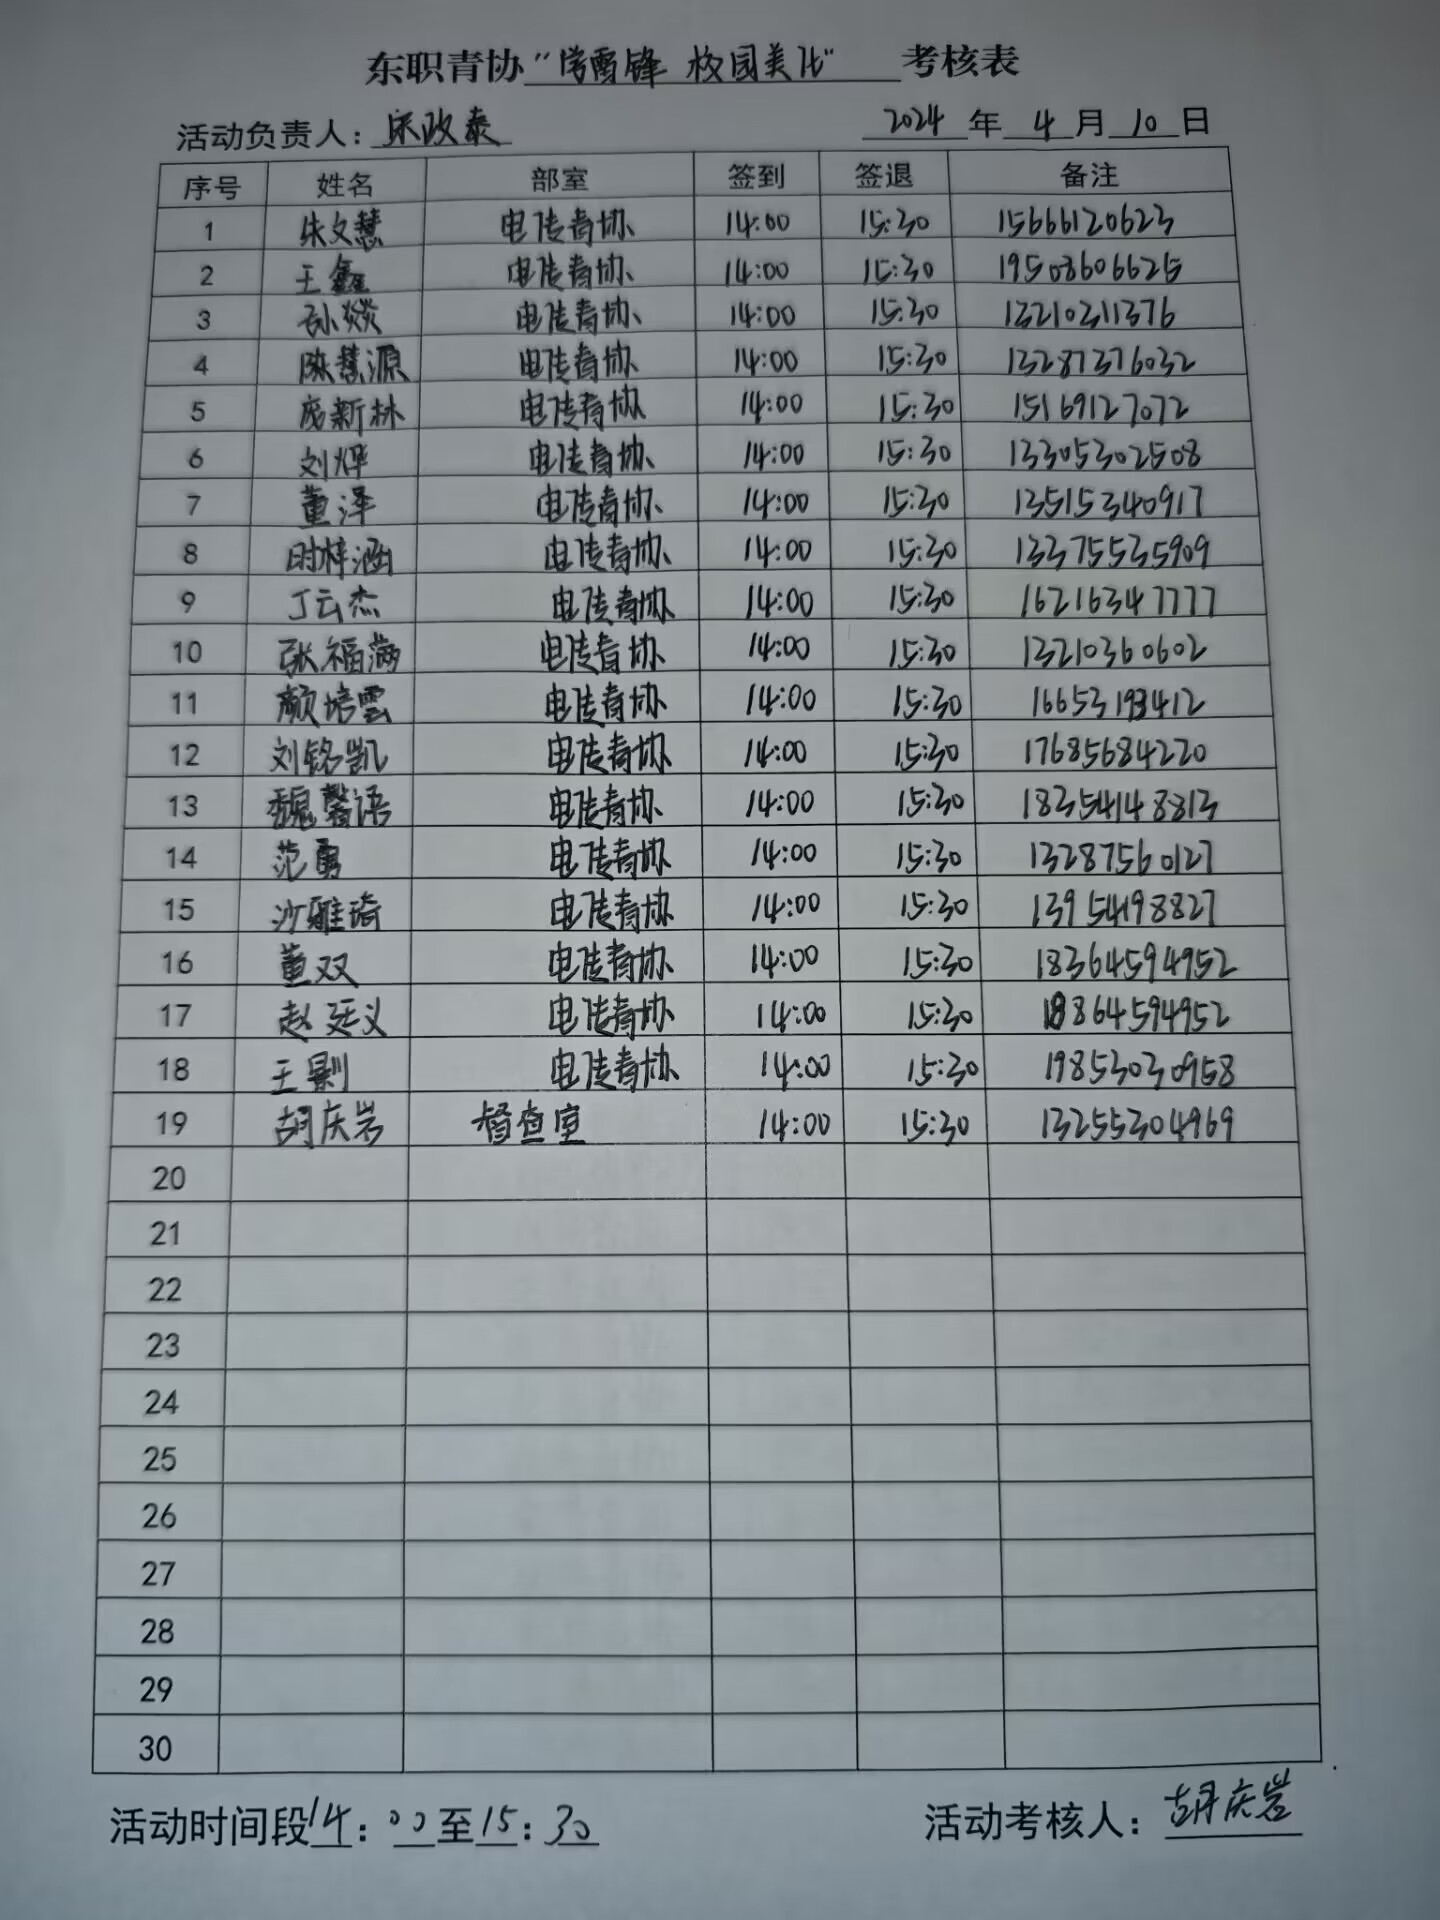 东职青协“学雷锋 校园美化” 考核表
活动负责人：宋政泰 2024 年 4 月 10 日
序号 姓名 部室 签到 签退 备注
1 朱文慧 电传青协 14:00 15:30 15666120623
2 王鑫 电传青协 14:00 15:30 19508606625
3 孙燚 电传青协 14:00 15:30 13210311376
4 陈慧源 电传青协 14:00 15:30 13287376032
5 庞新林 电传青协 14:00 15:30 15169127072
6 刘烨 电传青协 14:00 15:30 13305302508
7 董泽 电传青协 14:00 15:30 13515340917
8 时梓涵 电传青协 14:00 15:30 13375535909
9 丁云杰 电传青协 14:00 15:30 16216347777
10 张福满 电传青协 14:00 15:30 13210360602
11 颜培雲 电传青协 14:00 15:30 16653193412
12 刘铭凯 电传青协 14:00 15:30 17685684220
13 魏馨语 电传青协 14:00 15:30 18354148813
14 范勇 电传青协 14:00 15:30 13287560127
15 沙雅琦 电传青协 14:00 15:30 13954198827
16 董双 电传青协 14:00 15:30 18364594952
17 赵廷义 电传青协 14:00 15:30 18864594952
18 王 电传青协 14:00 15:30 19853030958
19 胡庆岩 督查室 14:00 15:30 13255304969
20
21
22
23
24
25
26
27
28
29
30
活动时间段14：00至15：30 活动考核人：胡庆岩